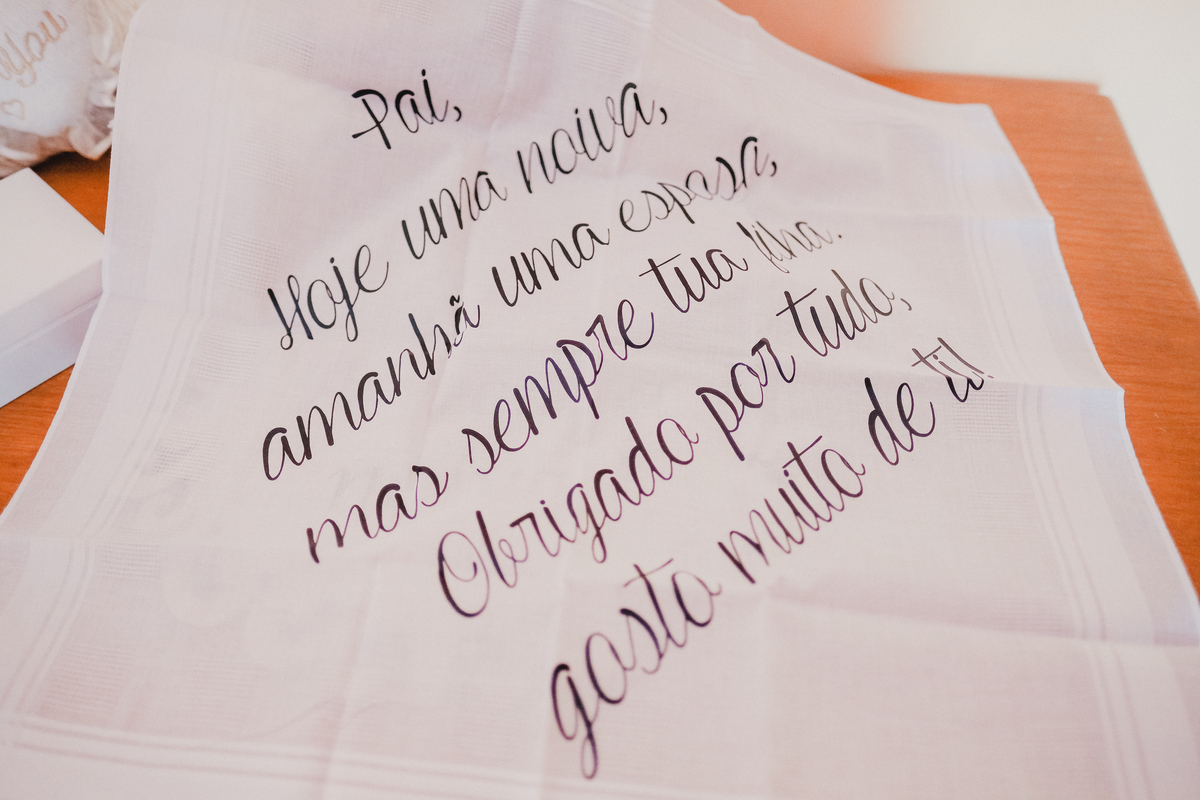 you
Pai,
Hoje uma noiva,
amanhã uma esposa,
mas sempre tua filha.
Obrigado por tudo,
gosto muito de ti!